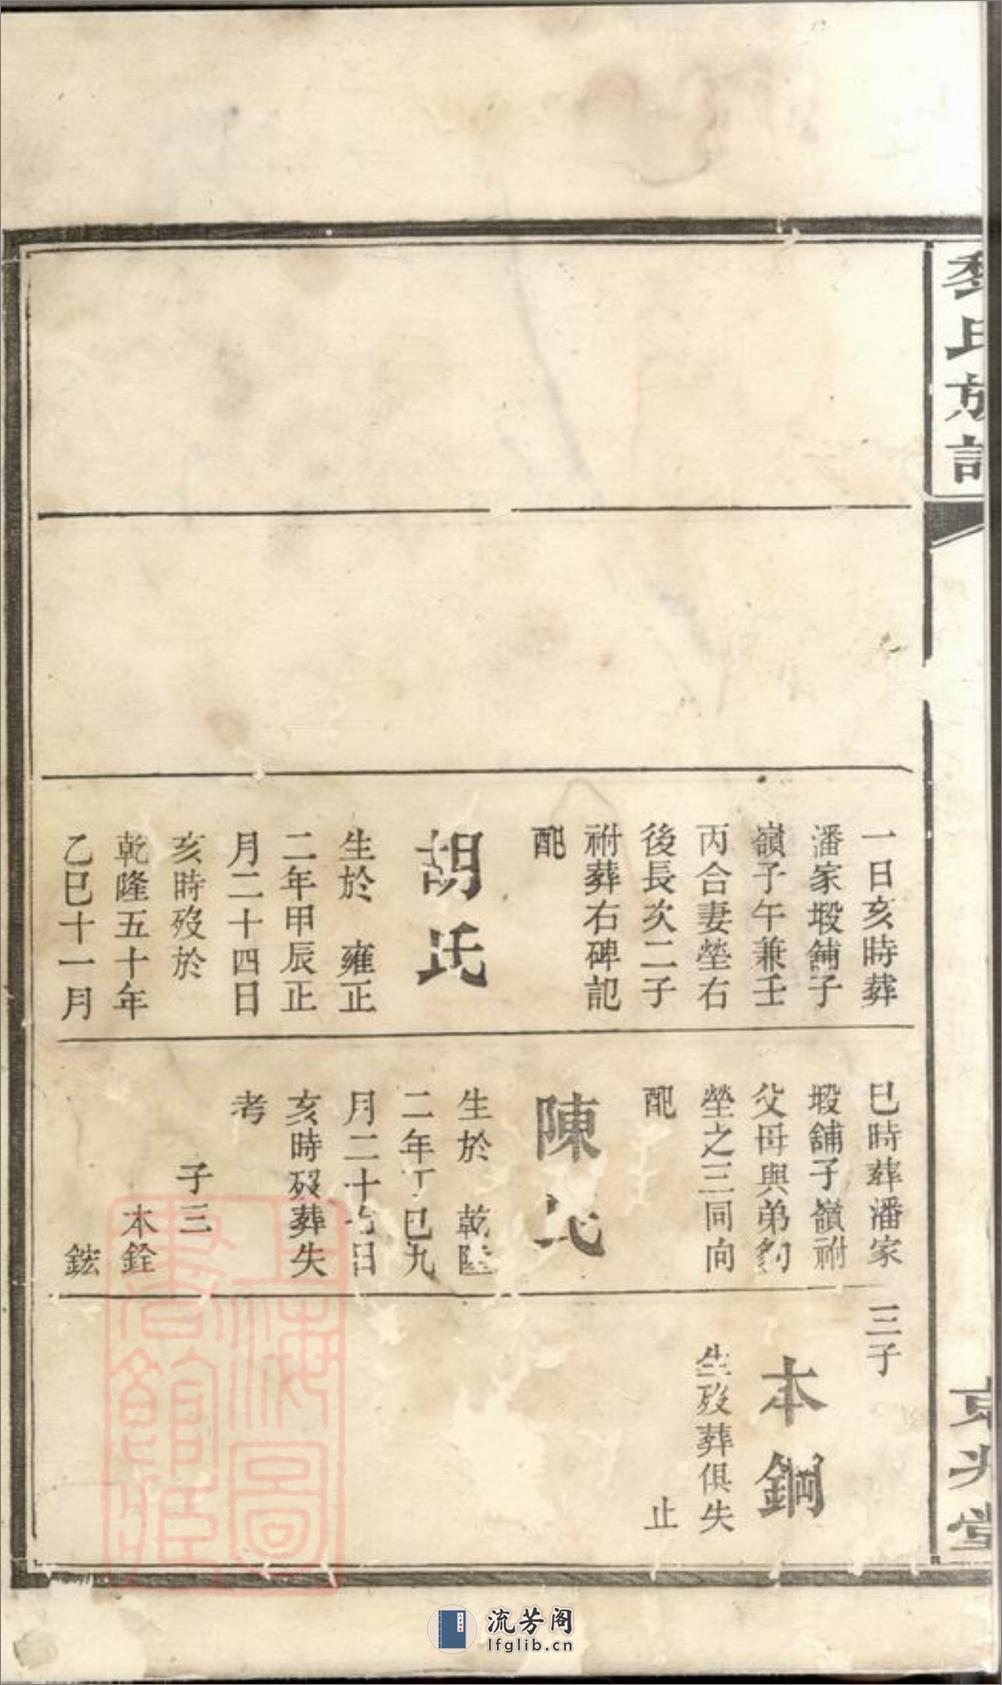 氏族譜
京兆堂
一日亥時葬
潘家塅舖子
嶺子午兼壬
丙合妻塋右
後長次二子
祔葬右碑記
配
胡氏
生於 雍正
二年甲辰正
月二十四日
亥時歿於
乾隆五十年
乙巳十一月
巳時葬潘家
塅舖子嶺祔
父母與弟
塋之三同向
配
陳氏
生於 乾隆
二年丁巳九
月二十七日
亥時歿葬失
考
子三
本銓
鋐
三子
本鋼
生歿葬俱失
止
上海圖
書館藏
流芳阁
lfglib.cn